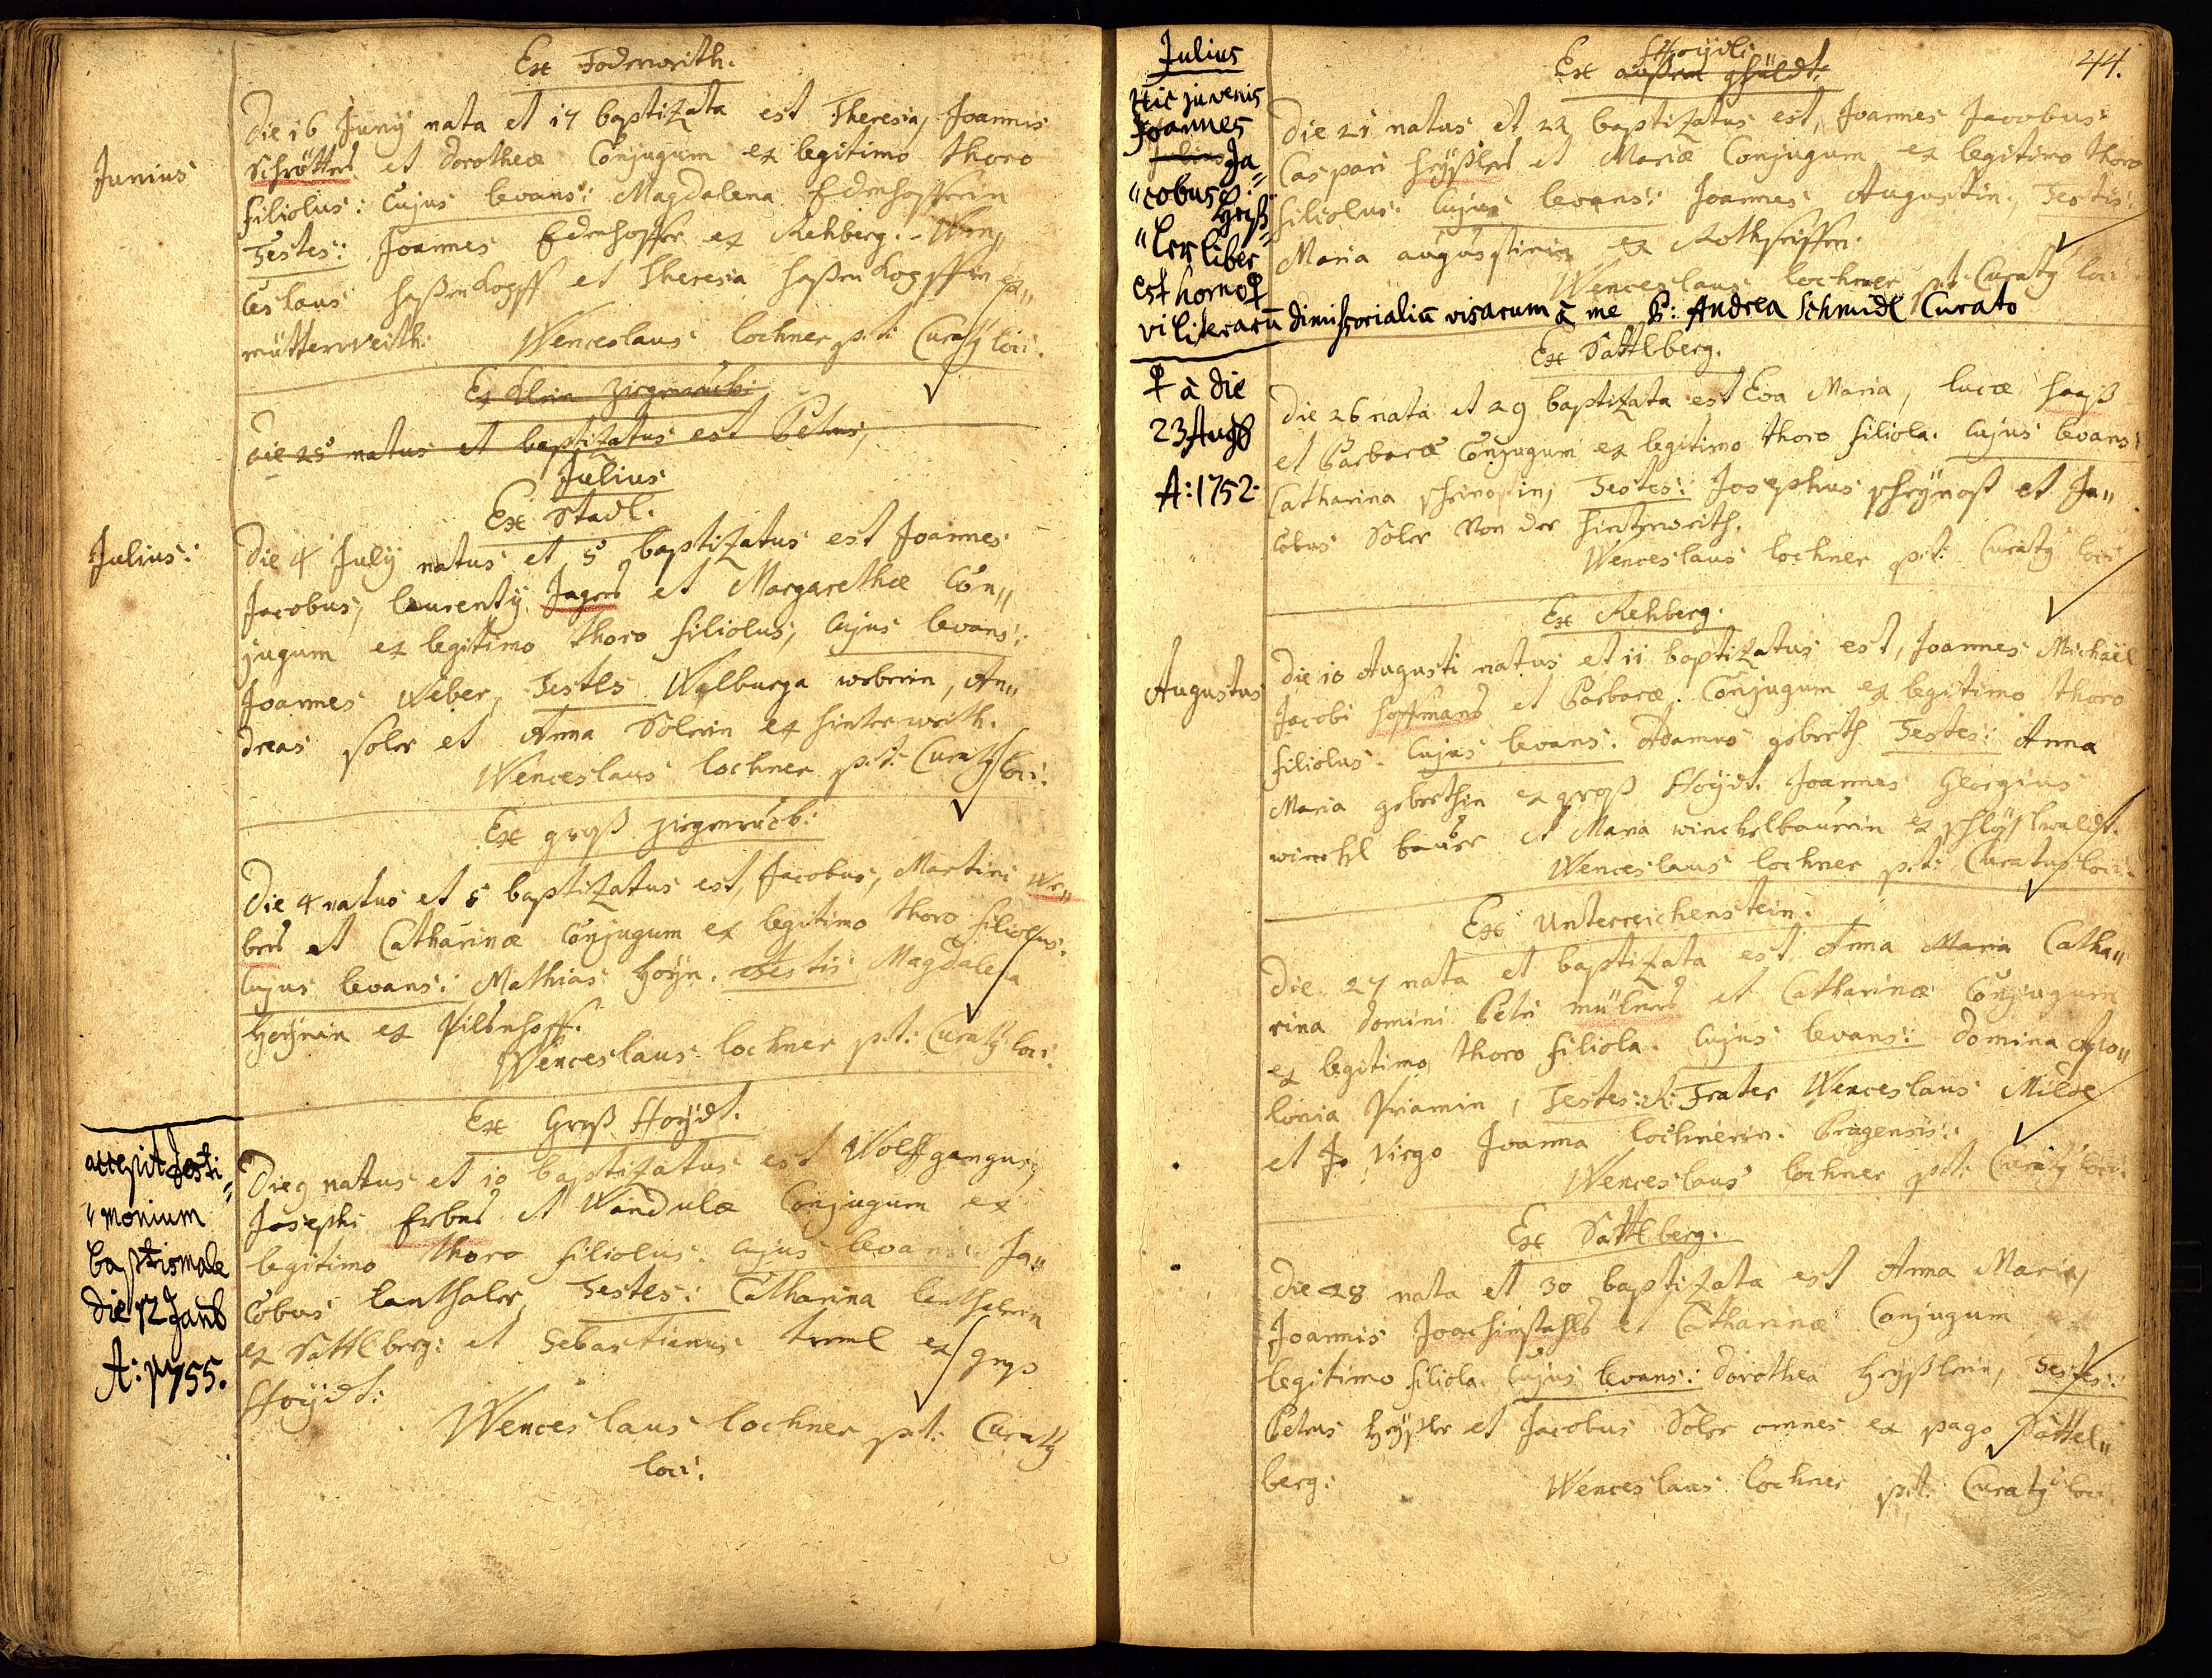 Ex Foderweith.
Junius
Die 16 Juny nata et 17 baptizata est Theresia, Joannis
Schrötters et Dorotheæ Conjugum ex legitimo thoro
filiolus: Cujus levans: Magdalena Edenhofferin
Testes: Joannes Edenhoffer ex Rehberg. Wen„
ceslaus haßenkopff et Theresia haßenkopffin ex„
mütterweith. Wenceslaus lochner p.t: Curatg loci.
Ex klein Ziegenruck:
die 25 natus et baptizatus est Petrus,
Julius
Ex Stadl.
Julius:
Die 4 July natus et 5 baptizatus est Joannes
Jacobus, laurenty Jagers et Margarethæ Con„
jugum ex legitimo thoro filiolus, Cujus levans:
Joannes Weber, Testes Walburga weberin, An„
dreas soler et Anna Solerin ex hinterweith.
Wenceslaus lochner p.t: Curatg loci.
Ex groß ziegenruck:
Die 4 natus et 5 baptizatus est, Jacobus, Martini We„
bers et Catharinæ Conjugum ex legitimo thoro filiolus.
Cujus levans: Mathias Hoÿn. Testis Magdalena
Hoÿnin ex Pilsenhoff.
Wenceslaus lochner p.t: Curatg loci.
Ex Groß Hoÿdt.
accepit testi„
„monium
baptismale
die 12 Janu
A: 1755.
Die 9 natus et 10 baptizatus est Wolffgangus,
Josephi Erbers et Wandulæ Conjugum ex
legitimo thoro filiolus. Cujus levans: Ja„
cobus lenthaler, Testes: Catharina lenthalerin
ex Sattlberg: et Sebastianus treml ex groß
Hoÿdt:
Wenceslaus lochner p.t: Curatg
loci.
44.
Julius
Hic juvenis
Joannes
Julius Ja
„cobus
Heiß„
„ler liber
est homo
vi literarū dimissorialiū visarum à me P: Andrea Schmidl Curato
à die
23 Aug
A: 1752.
Hoÿdl:
Ex außern gfildt:
Die 21 natus et 22 baptizatus est, Joannes Jacobus
Caspari Heÿßlers et Mariæ Conjugum ex legitimo thoro
filiolus. Cujus levans: Joannes Augustin, Testis:
Maria augustinin ex Rothseiffen.
Wenceslaus lochner p.t. Curatg loci
Ex Sattlberg.
Die 26 nata et 29 baptizata est Eva Maria, lucæ haas
et Barbaræ Conjugum ex legitimo thoro filiola. Cujus levans:
Catharina schreinostin, Testes: Josephus schreÿnost et Ja„
cobus Soler von der hinterweith.
Wenceslaus lochner p.t: Curatg loci
Ex Rehberg.
Augustus
Die 10 Augusti natus et 11 baptizatus est, Joannes Michaël
Jacobi hoffmans et Barbaræ Conjugum ex legitimo thoro
filiolus. Cujus levans. Adamus geberth Testes: Anna
Maria geberthin ex groß Hoÿdt. Joannes Georgius
winckl bauer et Maria winckelbaurin ex schlößlwaldt.
Wenceslaus lochner p.t: Curatus loci.
Ex Unterreichenstein.
Die 27 nata et baptizata est Anna Maria Catha„
rina Domini Petri müllners et Catharinæ Conjugum
ex legitimo thoro filiola. Cujus levans: Domina Apo„
lonia Priamin, Testes: R: Frater Wenceslaus Milde
et Virgo Joanna lochnerin. Pragensis:
Wenceslaus lochner p.t: Curatg loci.
Ex Sattlberg.
Die 28 nata et 30 baptizata est Anna Maria,
Joannis Joachimstahls et Catharinæ Conjugum ex
legitimo filiola. Cujus levans: Dorothea Heÿßlerin, Testes:
Petrus Heÿßler et Jacobus Soler omnes ex pago Sattel„
berg:
Wenceslaus lochner p.t. Curatg loci